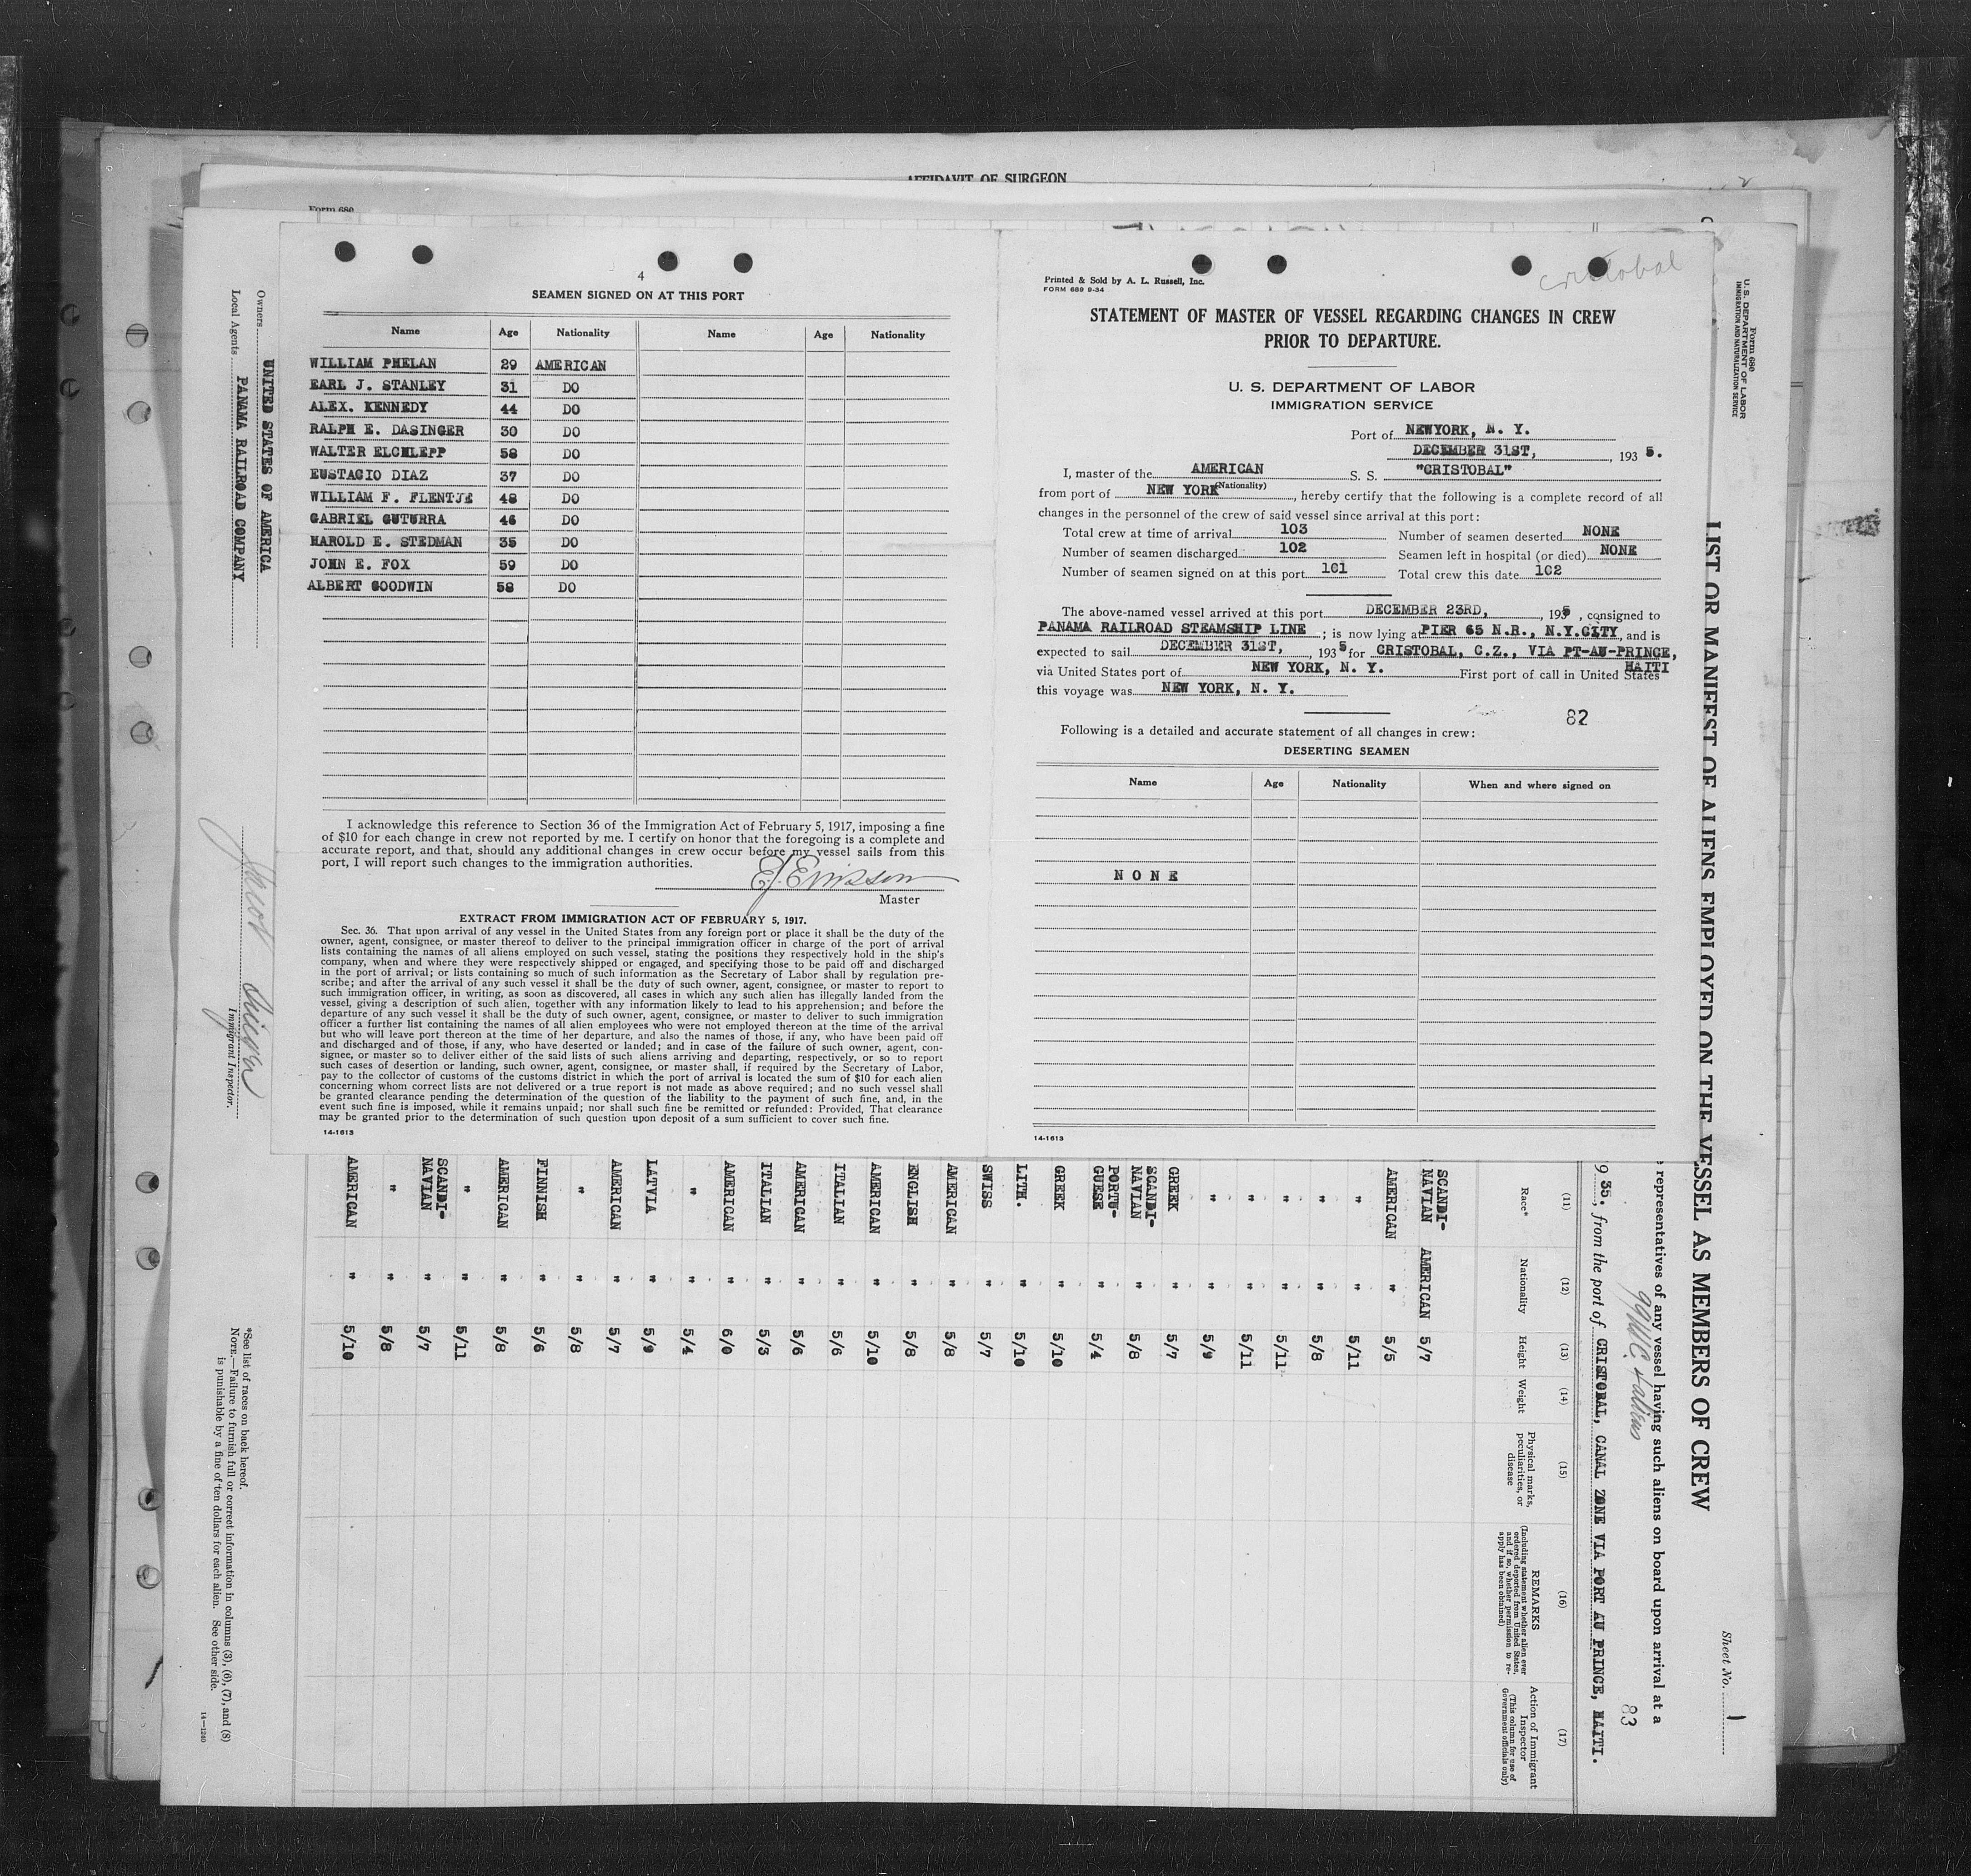 AFFIDAVIT OF SURGEON
Form 680
4
SEAMEN SIGNED ON AT THIS PORT
Name Age Nationality Name Age Nationality
WILLIAM PHELAN 29 AMERICAN
EARL J. STANLEY 31 DO
ALEX. KENNEDY 44 DO
RALPH E. DASINGER 30 DO
WALTER ELCHLEPP 58 DO
EUSTACIO DIAZ 37 DO
WILLIAM F. FLENTJE 48 DO
GABRIEL GUTURRA 46 DO
HAROLD E. STEDMAN 35 DO
JOHN E. FOX 59 DO
ALBERT GOODWIN 58 DO
I acknowledge this reference to Section 36 of the Immigration Act of February 5, 1917, imposing a fine
of $10 for each change in crew not reported by me. I certify on honor that the foregoing is a complete and
accurate report, and that, should any additional changes in crew occur before my vessel sails from this
port, I will report such changes to the immigration authorities.
Master
EXTRACT FROM IMMIGRATION ACT OF FEBRUARY 5, 1917.
Sec. 36. That upon arrival of any vessel in the United States from any foreign port or place it shall be the duty of the
owner, agent, consignee, or master thereof to deliver to the principal immigration officer in charge of the port of arrival
lists containing the names of all aliens employed on such vessel, stating the positions they respectively hold in the ship's
company, when and where they were respectively shipped or engaged, and specifying those to be paid off and discharged
in the port of arrival; or lists containing so much of such information as the Secretary of Labor shall by regulation pre-
scribe; and after the arrival of any such vessel it shall be the duty of such owner, agent, consignee, or master to report to
such immigration officer, in writing, as soon as discovered, all cases in which any such alien has illegally landed from the
vessel, giving a description of such alien, together with any information likely to lead to his apprehension; and before the
departure of any such vessel it shall be the duty of such owner, agent, consignee, or master to deliver to such immigration
officer a further list containing the names of all alien employees who were not employed thereon at the time of the arrival
but who will leave port thereon at the time of her departure, and also the names of those, if any, who have been paid off
and discharged and of those, if any, who have deserted or landed; and in case of the failure of such owner, agent, con-
signee, or master so to deliver either of the said lists of such aliens arriving and departing, respectively, or so to report
such cases of desertion or landing, such owner, agent, consignee, or master shall, if required by the Secretary of Labor,
pay to the collector of customs of the customs district in which the port of arrival is located the sum of $10 for each alien
concerning whom correct lists are not delivered or a true report is not made as above required; and no such vessel shall
be granted clearance pending the determination of the question of the liability to the payment of such fine, and, in the
event such fine is imposed, while it remains unpaid; nor shall such fine be remitted or refunded: Provided, That clearance
may be granted prior to the determination of such question upon deposit of a sum sufficient to cover such fine.
14-1613
cristobal
Printed & Sold by A. L. Russell, Inc.
FORM 689 9-34
STATEMENT OF MASTER OF VESSEL REGARDING CHANGES IN CREW
PRIOR TO DEPARTURE.
U. S. DEPARTMENT OF LABOR
IMMIGRATION SERVICE
Port of NEWYORK, N. Y.
DECEMBER 31ST, , 193 5.
I, master of the AMERICAN S. S. "CRISTOBAL"
(Nationality)
from port of NEW YORK, hereby certify that the following is a complete record of all
changes in the personnel of the crew of said vessel since arrival at this port:
Total crew at time of arrival 103 Number of seamen deserted NONE
Number of seamen discharged 102 Seamen left in hospital (or died) NONE
Number of seamen signed on at this port 101 Total crew this date 102
The above-named vessel arrived at this port DECEMBER 23RD, , 1935 , consigned to
PANAMA RAILROAD STEAMSHIP LINE ; is now lying at PIER 65 N.R., N.Y.CITY, and is
expected to sail DECEMBER 31ST, , 1935 for CRISTOBAL, C.Z., VIA PT-AU-PRINCE,
HAITI
via United States port of NEW YORK, N. Y. First port of call in United States
this voyage was NEW YORK, N. Y.
82
Following is a detailed and accurate statement of all changes in crew:
DESERTING SEAMEN
Name Age Nationality When and where signed on
NONE
14-1613
Form 680
U. S. DEPARTMENT OF LABOR
IMMIGRATION AND NATURALIZATION SERVICE
Sheet No. 1
LIST OR MANIFEST OF ALIENS EMPLOYED ON THE VESSEL AS MEMBERS OF CREW
representatives of any vessel having such aliens on board upon arrival at a
83
9 35, from the port of CRISTOBAL, CANAL ZONE VIA PORT AU PRINCE, HAITI.
(11) (12) (13) (14) (15) (16) (17)
Race* Nationality Height Weight Physical marks, peculiarities, or disease REMARKS (Including statement whether alien ever ordered deported from United States, and if so, whether permission to re-apply has been obtained) Action of Immigrant Inspector (This column for use of Government officials only)
SCANDI-
NAVIAN AMERICAN 5/7
AMERICAN " 5/5
" " 5/11
" " 5/8
" " 5/11
" " 5/11
" " 5/9
GREEK " 5/7
SCANDI-
NAVIAN " 5/8
PORTU-
GUESE " 5/4
GREEK " 5/10
LITH. " 5/10
SWISS " 5/7
AMERICAN " 5/8
ENGLISH " 5/8
AMERICAN " 5/10
ITALIAN " 5/6
AMERICAN " 5/6
ITALIAN " 5/3
AMERICAN " 6/0
" " 5/4
LATVIA " 5/9
AMERICAN " 5/7
" " 5/8
FINNISH " 5/6
AMERICAN " 5/8
" " 5/11
SCANDI-
NAVIAN " 5/7
" " 5/8
AMERICAN " 5/10
Owners UNITED STATES OF AMERICA
Local Agents PANAMA RAILROAD COMPANY
Immigrant Inspector.
*See list of races on back hereof.
NOTE.—Failure to furnish full or correct information in columns (3), (6), (7), and (8)
is punishable by a fine of ten dollars for each alien. See other side.
14—1240